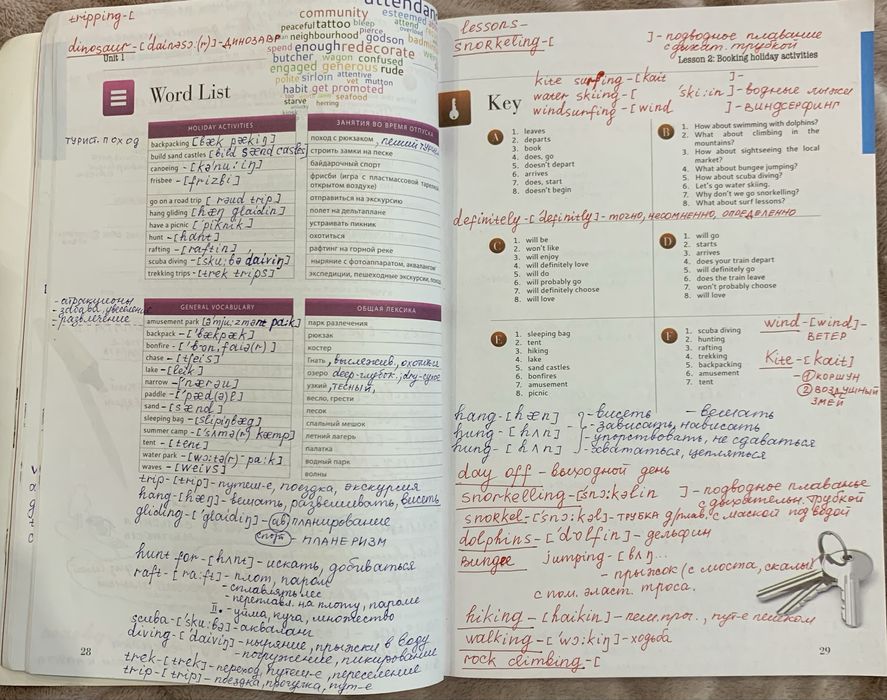 tripping-[
dinosaur-['dainəsɔ:(r)]-ДИНОЗАВР
Unit 1
community
esteemed
peaceful tattoo bleep
attend
neighbourhood pierce
overload
godson
spend enough redecorate
butcher wagon confused
engaged generous rude
polite sirloin attentive
vet mutton
habit get promoted
starve seafood
herring
Word List
HOLIDAY ACTIVITIES
ЗАНЯТИЯ ВО ВРЕМЯ ОТПУСКА
турист. поход
backpacking [bæk pækiŋ]
поход с рюкзаком, пеший туризм
build sand castles [bild sænd castles]
строить замки на песке
canoeing - [kə'nu:iŋ]
байдарочный спорт
frisbee - [frizbi]
фрисби (игра с пластмассовой тарелкой на открытом воздухе)
go on a road trip [rəud trip]
отправиться на экскурсию
hang gliding [hæŋ glaidin]
полет на дельтаплане
have a picnic [piknik]
устраивать пикник
hunt - [hʌnt]
охотиться
rafting - [raftin]
рафтинг на горной реке
scuba diving - [sku:bə daiviŋ]
ныряние с фотоаппаратом, аквалангом
trekking trips - [trek trips]
экспедиции, пешеходные экскурсии, походы
- атракционы
- забава, увеселение
- развлечение
GENERAL VOCABULARY
ОБЩАЯ ЛЕКСИКА
amusement park [ə'mju:zmənt pa:k]
парк развлечения
backpack - ['bækpæk]
рюкзак
bonfire - ['bɔn,faiə(r)]
костер
chase - [tʃeis]
гнать, выслежив., охотиться
lake - [leik]
озеро deep-глубок., dry-сухое
narrow - ['nærəu]
узкий, тесный,
paddle - ['pæd(ə)l]
весло, грести
sand - [sænd]
песок
sleeping bag - [slipiŋbæg]
спальный мешок
summer camp - ['sʌmə(r) kæmp]
летний лагерь
tent - [tent]
палатка
water park - [wɔ:tə(r) pa:k]
водный парк
waves - [weivs]
волны
trip-[trip]-путеш-е, поездка, экскурсия
hang-[hæŋ]-вешать, развешивать, висеть
gliding-['glaidiŋ]-(ав) планирование
- ПЛАНЕРИЗМ
hunt for-[hʌnt]-искать, добиваться
raft-[ra:ft]-плот, паром
- сплавлять лес
- переплавл. на плоту, пароме
II. - уйма, куча, множество
scuba-['sku:bə]-акваланг
diving-['daiviŋ]-ныряние, прыжки в воду
- погружение, пикирование
trek-[trek]-переход, путеш-е, переселение
trip-[trip]-поездка, прогулка, пут-е
28
lessons-
snorkeling-[ ]-подводное плавание
с дыхат. трубкой
Lesson 2: Booking holiday activities
kite surfing-[kait ]-
water skiing-[ 'ski:in]-водные лыжи
windsurfing-[wind ]-ВИНДСЕРФИНГ
Key
A
1. leaves
2. departs
3. book
4. does, go
5. doesn't depart
6. arrives
7. does, start
8. doesn't begin
B
1. How about swimming with dolphins?
2. What about climbing in the mountains?
3. How about sightseeing the local market?
4. What about bungee jumping?
5. How about scuba diving?
6. Let's go water skiing.
7. Why don't we go snorkelling?
8. What about surf lessons?
definitely-[definitly]-точно, несомненно, определенно
C
1. will be
2. won't like
3. will enjoy
4. will definitely love
5. will do
6. will probably go
7. will definitely choose
8. will love
D
1. will go
2. starts
3. arrives
4. does your train depart
5. will definitely go
6. does the train leave
7. won't probably choose
8. will love
E
1. sleeping bag
2. tent
3. hiking
4. lake
5. sand castles
6. bonfires
7. amusement
8. picnic
F
1. scuba diving
2. hunting
3. rafting
4. trekking
5. backpacking
6. amusement
7. tent
wind-[wind]-
ВЕТЕР
Kite-[kait]
- ① КОРШУН
② ВОЗДУШНЫЙ
ЗМЕЙ
hang-[hæn] - висеть - вешать
hung-[hʌn] - зависать, нависать
hung-[hʌn] - упорствовать, не сдаваться
- хвататься, цепляться
day off - выходной день
snorkelling-[snɔ:kəlin ]-подводное плаванье
с дыхательн. трубкой
snorkel-['snɔ:kəl]-ТРУБКА д/плав. с маской под водой
dolphins-['dolfin]-дельфин
Bungee jumping-[bʌŋ...
- прыжок (с моста, скалы)
с пом. эласт. троса.
hiking-[haikin]-пеш.прог., пут-е пешком
walking-['wɔ:kiŋ]-ходьба
rock climbing-[
29